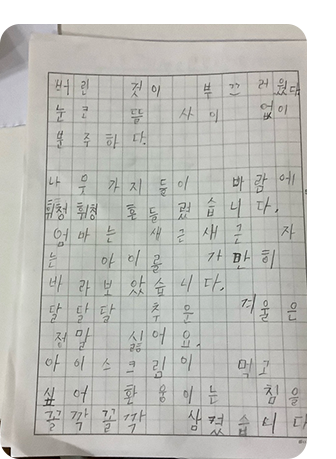 버린 것이 부끄러웠다
눈 큰 뜰 사이 없이
분주하다.
나뭇가지들이 바람에
휘청휘청 흔들렸습니다.
엄마는 새근새근 자
는 아이를 가만히
바라보았습니다.
달달달 추운 겨울은
정말 싫어요.
아이스크림이 먹고
싶어 환웅이는 침을
꼴깍꼴깍 삼켰습니다